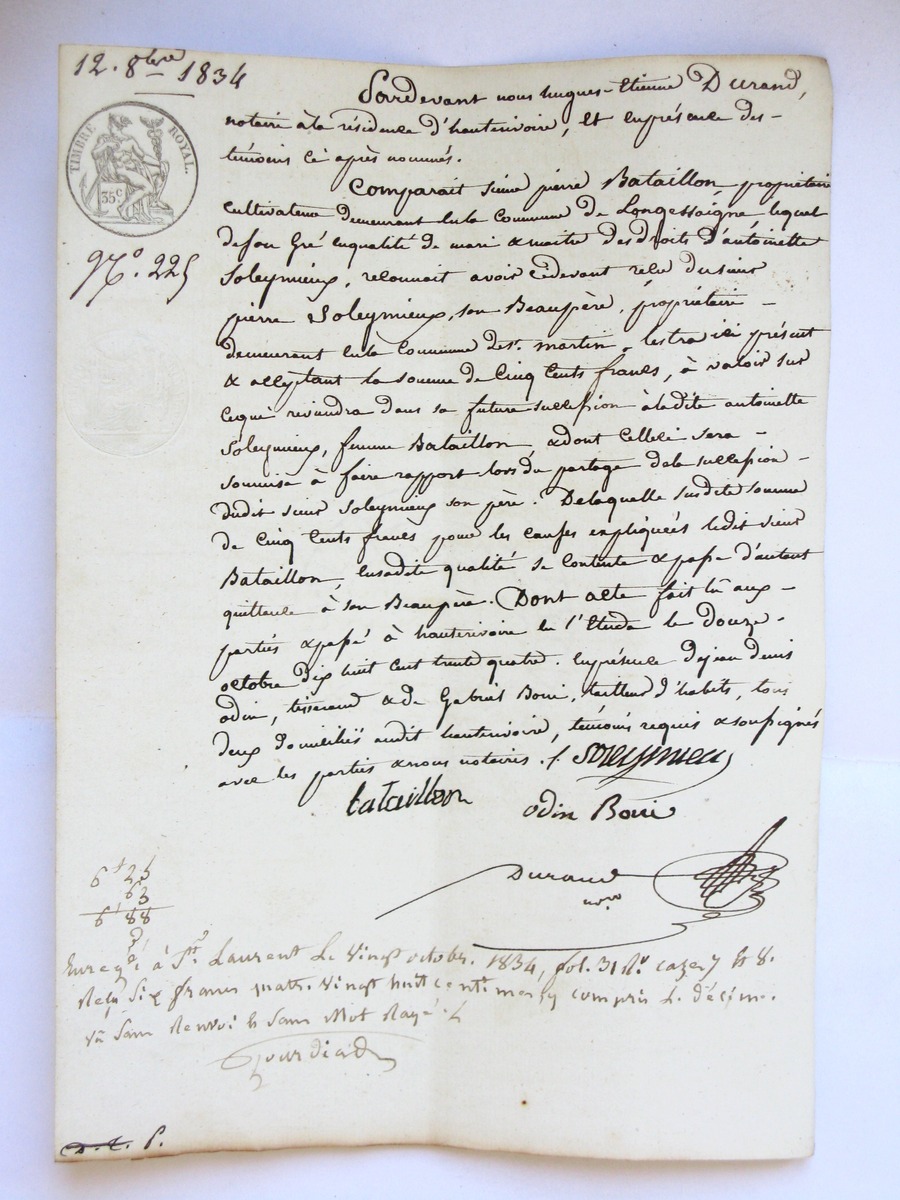 12. 8bre 1834
TIMBRE ROYAL.
35c
No. 225
Pardevant nous hugues-Etienne Durand,
notaire à la résidence d'hauterivoire, et en présence des-
témoins ci après nommés.
Comparait sieur pierre Bataillon, propriétaire
cultivateur demeurant en la commune de Longessaigne, lequel
de son gré en qualité de mari & maitre des droits d'antoinette
Soleymieux, reconnait avoir cidevant reçu du sieur
pierre Soleymieux, son Beaupère, propriétaire-
demeurant en la commune de st. martin-lestra ici présent
& acceptant la somme de Cinq Cents francs, à valoir sur
ceque reviendra dans sa future succession à ladite antoinette
Soleymieux, femme Bataillon, & dont celleci sera-
soumise à faire rapport lors du partage de la succession-
dudit sieur Soleymieux son père. De laquelle susdite somme
de Cinq Cents francs pour les causes expliquées ledit sieur
Bataillon, en sadite qualité se contente & passe d'autant
quittance à son Beaupère. Dont acte fait lu aux-
parties & passé à hauterivoire en l'Etude le Douze-
octobre dix huit cent trente quatre. En présence de jean denis
odin, tisserand & de Gabriel Boiri, tailleur d'habits, tous
deux domiciliés audit hauterivoire, témoins requis & soussignés
avec les parties & nous notaires ./. Soleymieu
bataillon
odin Boiri
Durand
nore
6f 25
63
6f 88
Enregé à St. Laurent le vingt octobre 1834, fol. 31 Ro. case 7 et 8.
Reçu Six francs quatre vingt huit centimes y compris le décime.
Sans Renvoi et Sans Mot Rayé
Gourdiad
D. L. P.